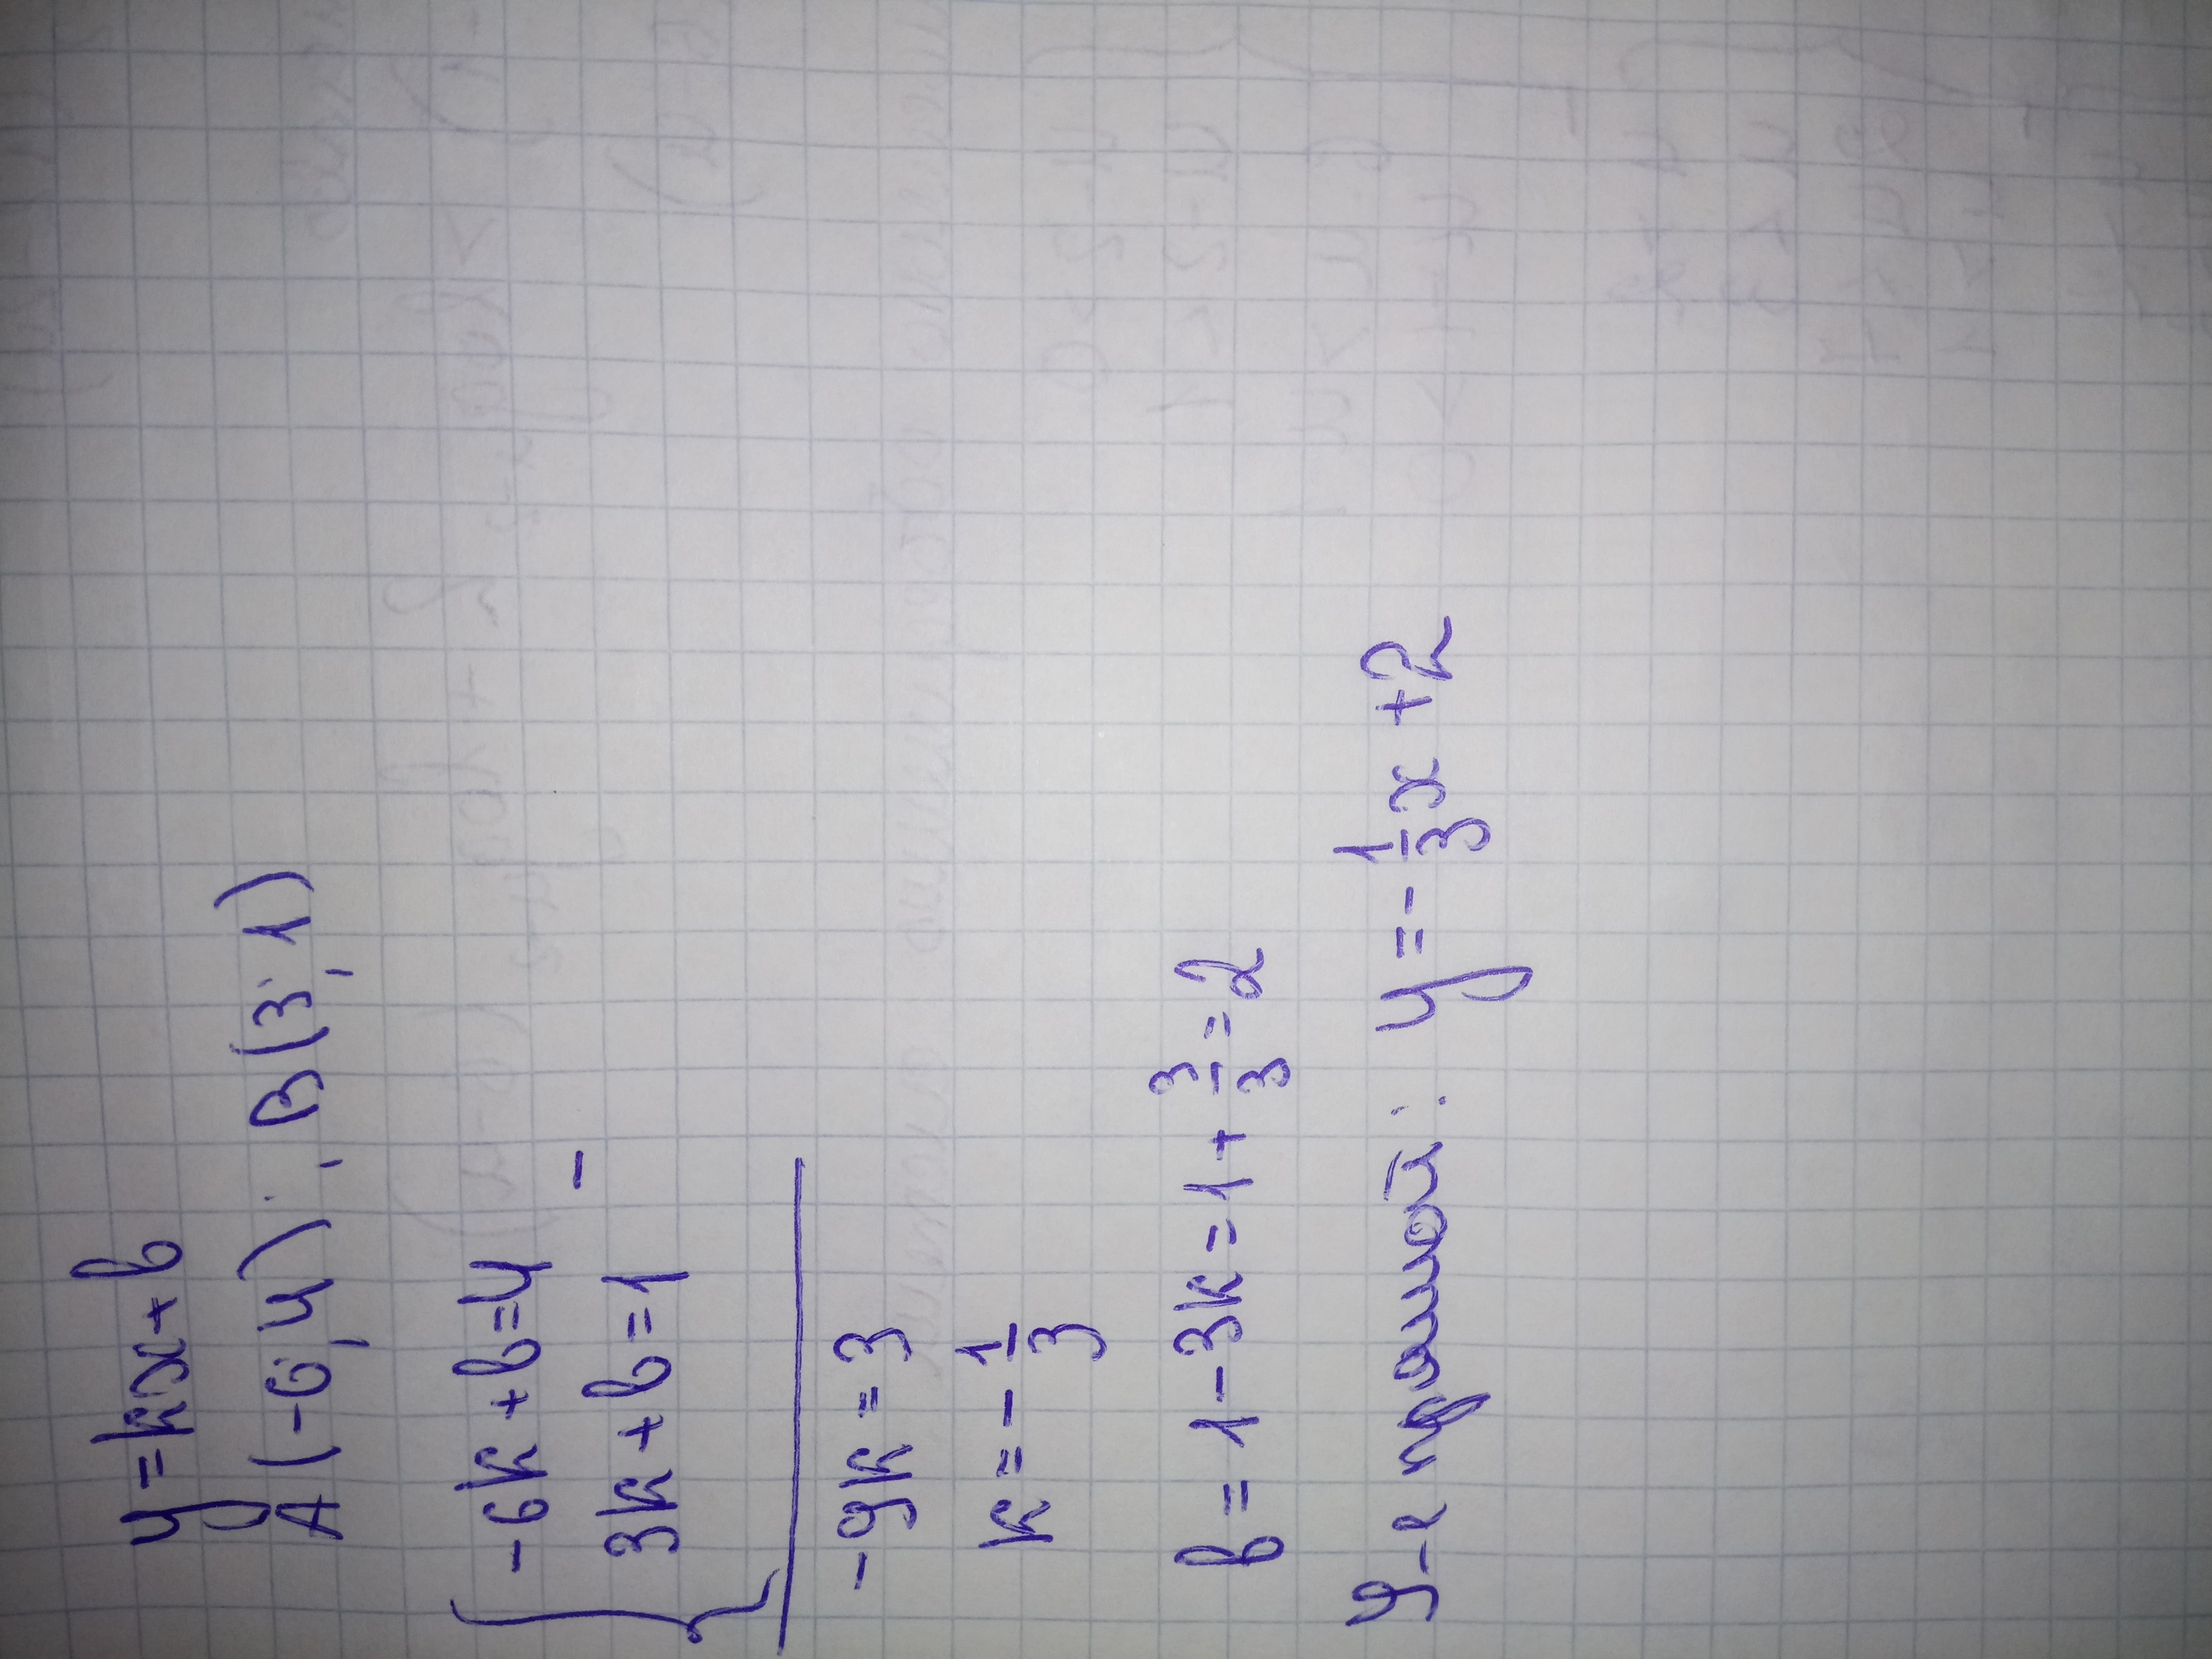 y = kx + b
A (-6; 4); B (3; 1)
{ -6k + b = 4 -
3k + b = 1
-9k = 3
k = - 1/3
b = 1 - 3k = 1 + 3/3 = 2
у-е прямой: y = - 1/3 x + 2